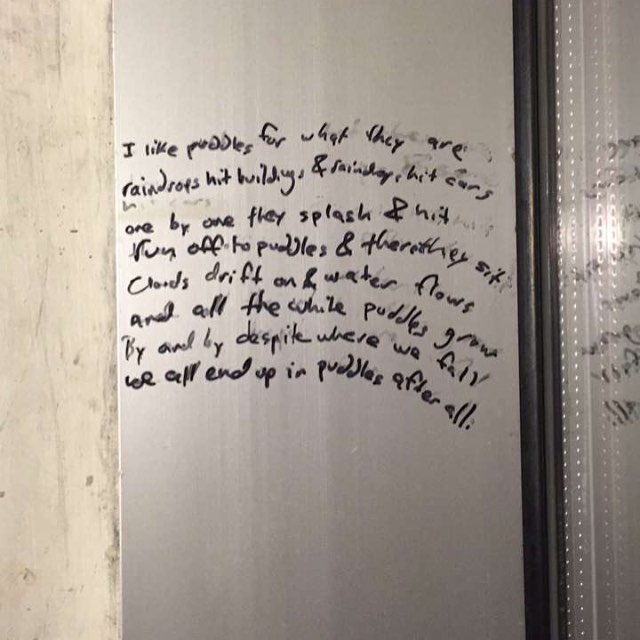 I like puddles for what they are
raindrops hit buildings & raindrops hit cars
one by one they splash & hit
run off to puddles & there they sit.
Clouds drift on & water flows
and all the while puddles grow
By and by despite where we fall
we all end up in puddles after all.